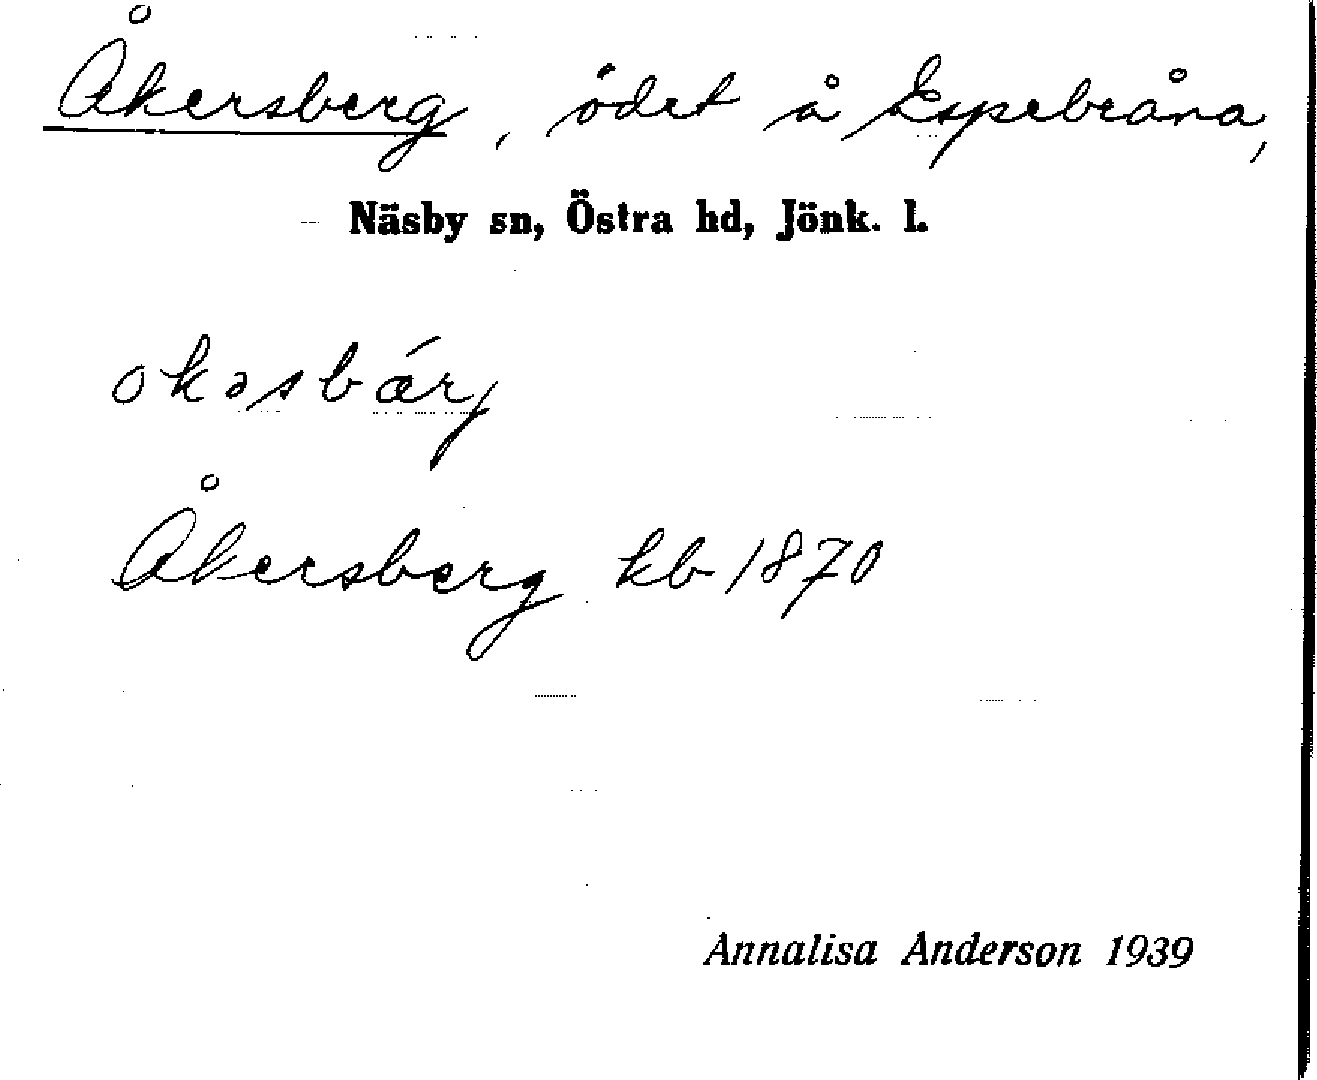 Åkersberg, ödet å Espebråna,
Näsby sn, Östra hd, Jönk. l.
okəsbárj
Åkersberg kb 1870
Annalisa Anderson 1939